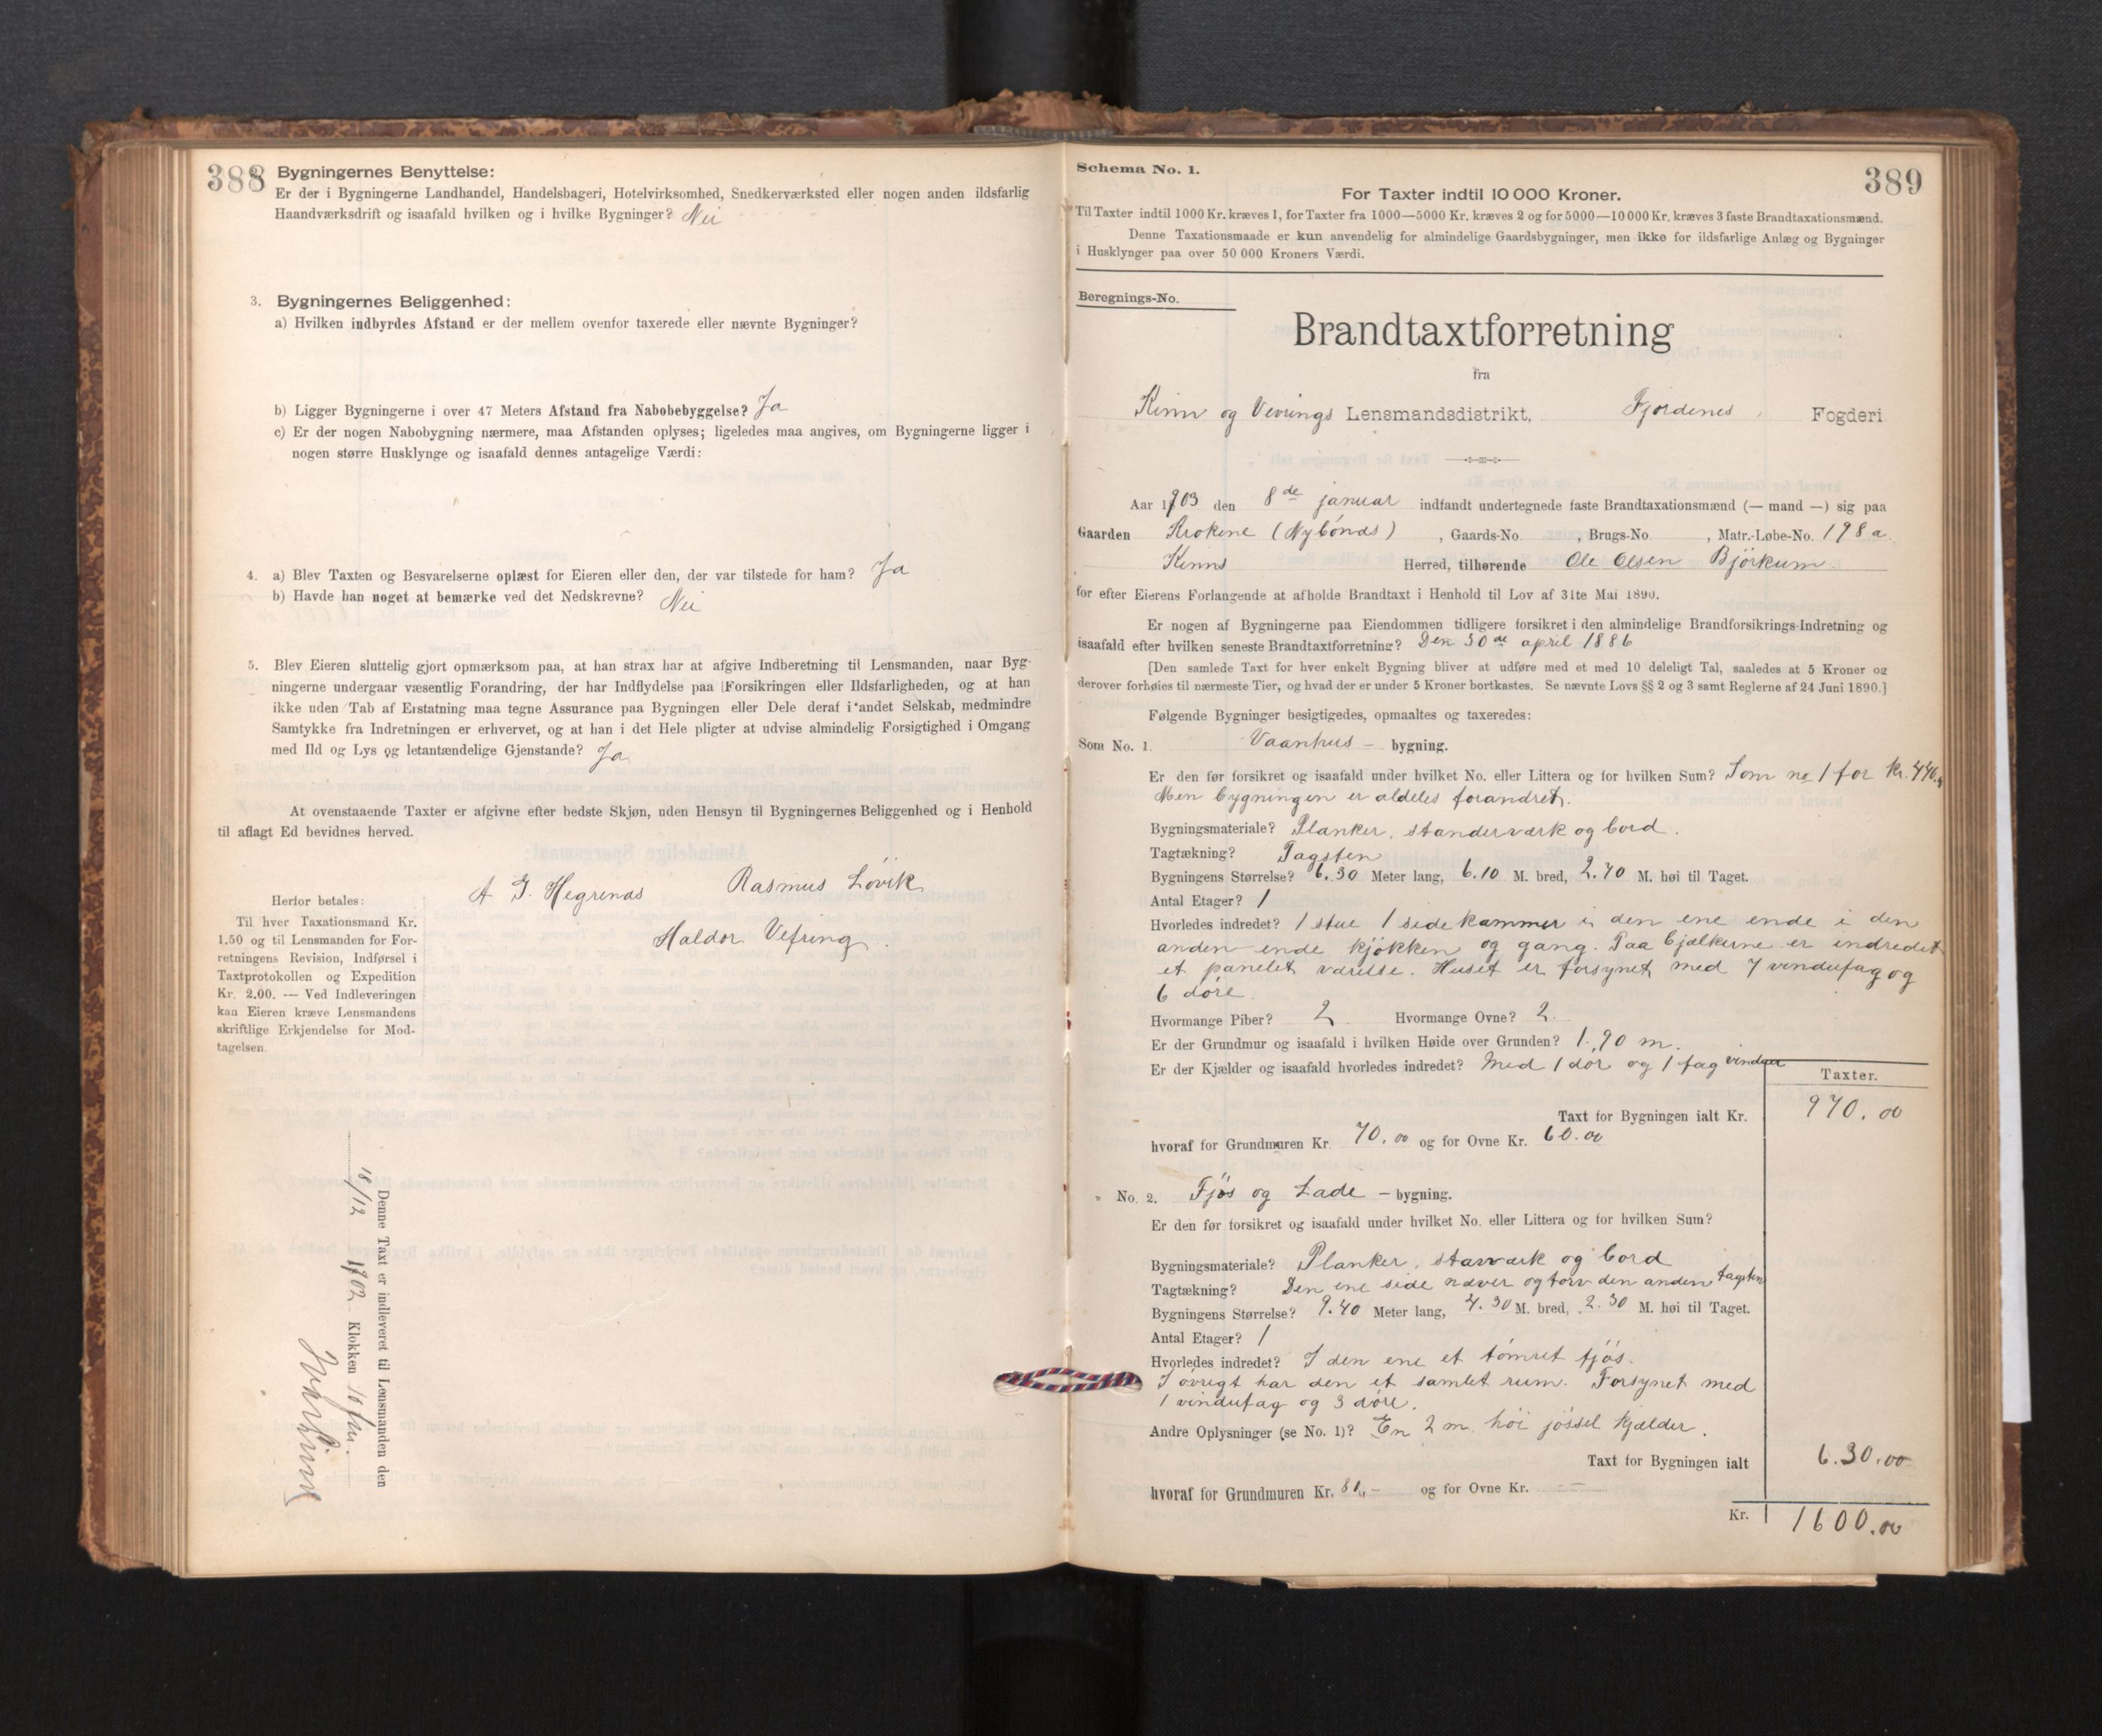 388
Bygningernes Benyttelse:
Er der i Bygningerne Landhandel, Handelsbageri, Hotelvirksomhed, Snedkerværksted eller nogen anden ildsfarlig
Haandværksdrift og isaafald hvilken og i hvilke Bygninger? Nei
3. Bygningernes Beliggenhed:
a) Hvilken indbyrdes Afstand er der mellem ovenfor taxerede eller nævnte Bygninger?
b) Ligger Bygningerne i over 47 Meters Afstand fra Nabobebyggelse? Ja
c) Er der nogen Nabobygning nærmere, maa Afstanden oplyses; ligeledes maa angives, om Bygningerne ligger i
nogen større Husklynge og isaafald dennes antagelige Værdi:
4. a) Blev Taxten og Besvarelserne oplæst for Eieren eller den, der var tilstede for ham? Ja
b) Havde han noget at bemærke ved det Nedskrevne? Nei
5. Blev Eieren sluttelig gjort opmærksom paa, at han strax har at afgive Indberetning til Lensmanden, naar Byg-
ningerne undergaar væsentlig Forandring, der har Indflydelse paa Forsikringen eller Ildsfarligheden, og at han
ikke uden Tab af Erstatning maa tegne Assurance paa Bygningen eller Dele deraf i andet Selskab, medmindre
Samtykke fra Indretningen er erhvervet, og at han i det Hele pligter at udvise almindelig Forsigtighed i Omgang
med Ild og Lys og letantændelige Gjenstande? Ja
At ovenstaaende Taxter er afgivne efter bedste Skjøn, uden Hensyn til Bygningernes Beliggenhed og i Henhold
til aflagt Ed bevidnes herved.
A J. Hegrenæs Rasmus Lövik
Haldor Vefring.
Herfor betales:
Til hver Taxationsmand Kr.
1.50 og til Lensmanden for For-
retningens Revision, Indførsel i
Taxtprotokollen og Expedition
Kr. 2.00. — Ved Indleveringen
kan Eieren kræve Lensmandens
skriftlige Erkjendelse for Mod-
tagelsen.
Denne Taxt er indleveret til Lensmanden den
18/12 1902 Klokken 10 fm.
389
Schema No. 1.
For Taxter indtil 10 000 Kroner.
Til Taxter indtil 1000 Kr. kræves 1, for Taxter fra 1000—5000 Kr. kræves 2 og for 5000—10 000 Kr. kræves 3 faste Brandtaxationsmænd.
Denne Taxationsmaade er kun anvendelig for almindelige Gaardsbygninger, men ikke for ildsfarlige Anlæg og Bygninger
i Husklynger paa over 50 000 Kroners Værdi.
Beregnings-No.
Brandtaxtforretning
fra
Kinn og Vevrings Lensmandsdistrikt, Fjordenes Fogderi
Aar 1903 den 8de januar indfandt undertegnede faste Brandtaxationsmænd (— mand —) sig paa
Gaarden Krokene (Nybönds) , Gaards-No. , Brugs-No. , Matr.-Løbe-No. 198 a
Kinns Herred, tilhørende Ole Olsen Björkum
for efter Eierens Forlangende at afholde Brandtaxt i Henhold til Lov af 31te Mai 1890.
Er nogen af Bygningerne paa Eiendommen tidligere forsikret i den almindelige Brandforsikrings-Indretning og
isaafald efter hvilken seneste Brandtaxtforretning? Den 30de april 1886
[Den samlede Taxt for hver enkelt Bygning bliver at udføre med et med 10 deleligt Tal, saaledes at 5 Kroner og
derover forhøies til nærmeste Tier, og hvad der er under 5 Kroner bortkastes. Se nævnte Lovs §§ 2 og 3 samt Reglerne af 24 Juni 1890.]
Følgende Bygninger besigtigedes, opmaaltes og taxeredes:
Som No. 1. Vaanhus — bygning.
Er den før forsikret og isaafald under hvilket No. eller Littera og for hvilken Sum? Som no 1 for kr. 440.
Men bygningen er aldeles forandret.
Bygningsmateriale? Planker, standerværk og bord.
Tagtækning? Tagsten
Bygningens Størrelse? 6.30 Meter lang, 6.10 M. bred, 2.70 M. høi til Taget.
Antal Etager? 1
Hvorledes indredet? 1 stue 1 sidekammer i den ene ende i den
anden ende kjökken og gang. Paa bjælkerne er indredet
et panelet værelse. Huset er forsynet med 7 vindufag og
6 döre.
Hvormange Piber? 2 Hvormange Ovne? 2.
Er der Grundmur og isaafald i hvilken Høide over Grunden? 1.90 m.
Er der Kjælder og isaafald hvorledes indredet? Med 1 dör og 1 fag vinduer
Taxter.
Taxt for Bygningen ialt Kr. 970.00
hvoraf for Grundmuren Kr. 70.00 og for Ovne Kr. 60.00
" No. 2. Fjös og Lade — bygning.
Er den før forsikret og isaafald under hvilket No. eller Littera og for hvilken Sum?
Bygningsmateriale? Planker, stavværk og bord
Tagtækning? Den ene side næver og torv den anden tagsten
Bygningens Størrelse? 9.40 Meter lang, 7.30 M. bred, 2.30 M. høi til Taget.
Antal Etager? 1
Hvorledes indredet? I den ene et tömret fjös.
I övrigt har den et samlet rum. Forsynet med
1 vindufag og 3 döre.
Andre Oplysninger (se No. 1)? En 2 m. höi jössel kjælder.
Taxt for Bygningen ialt 6.30.00
hvoraf for Grundmuren Kr. 80,- og for Ovne Kr. — —
Kr. 1600.00